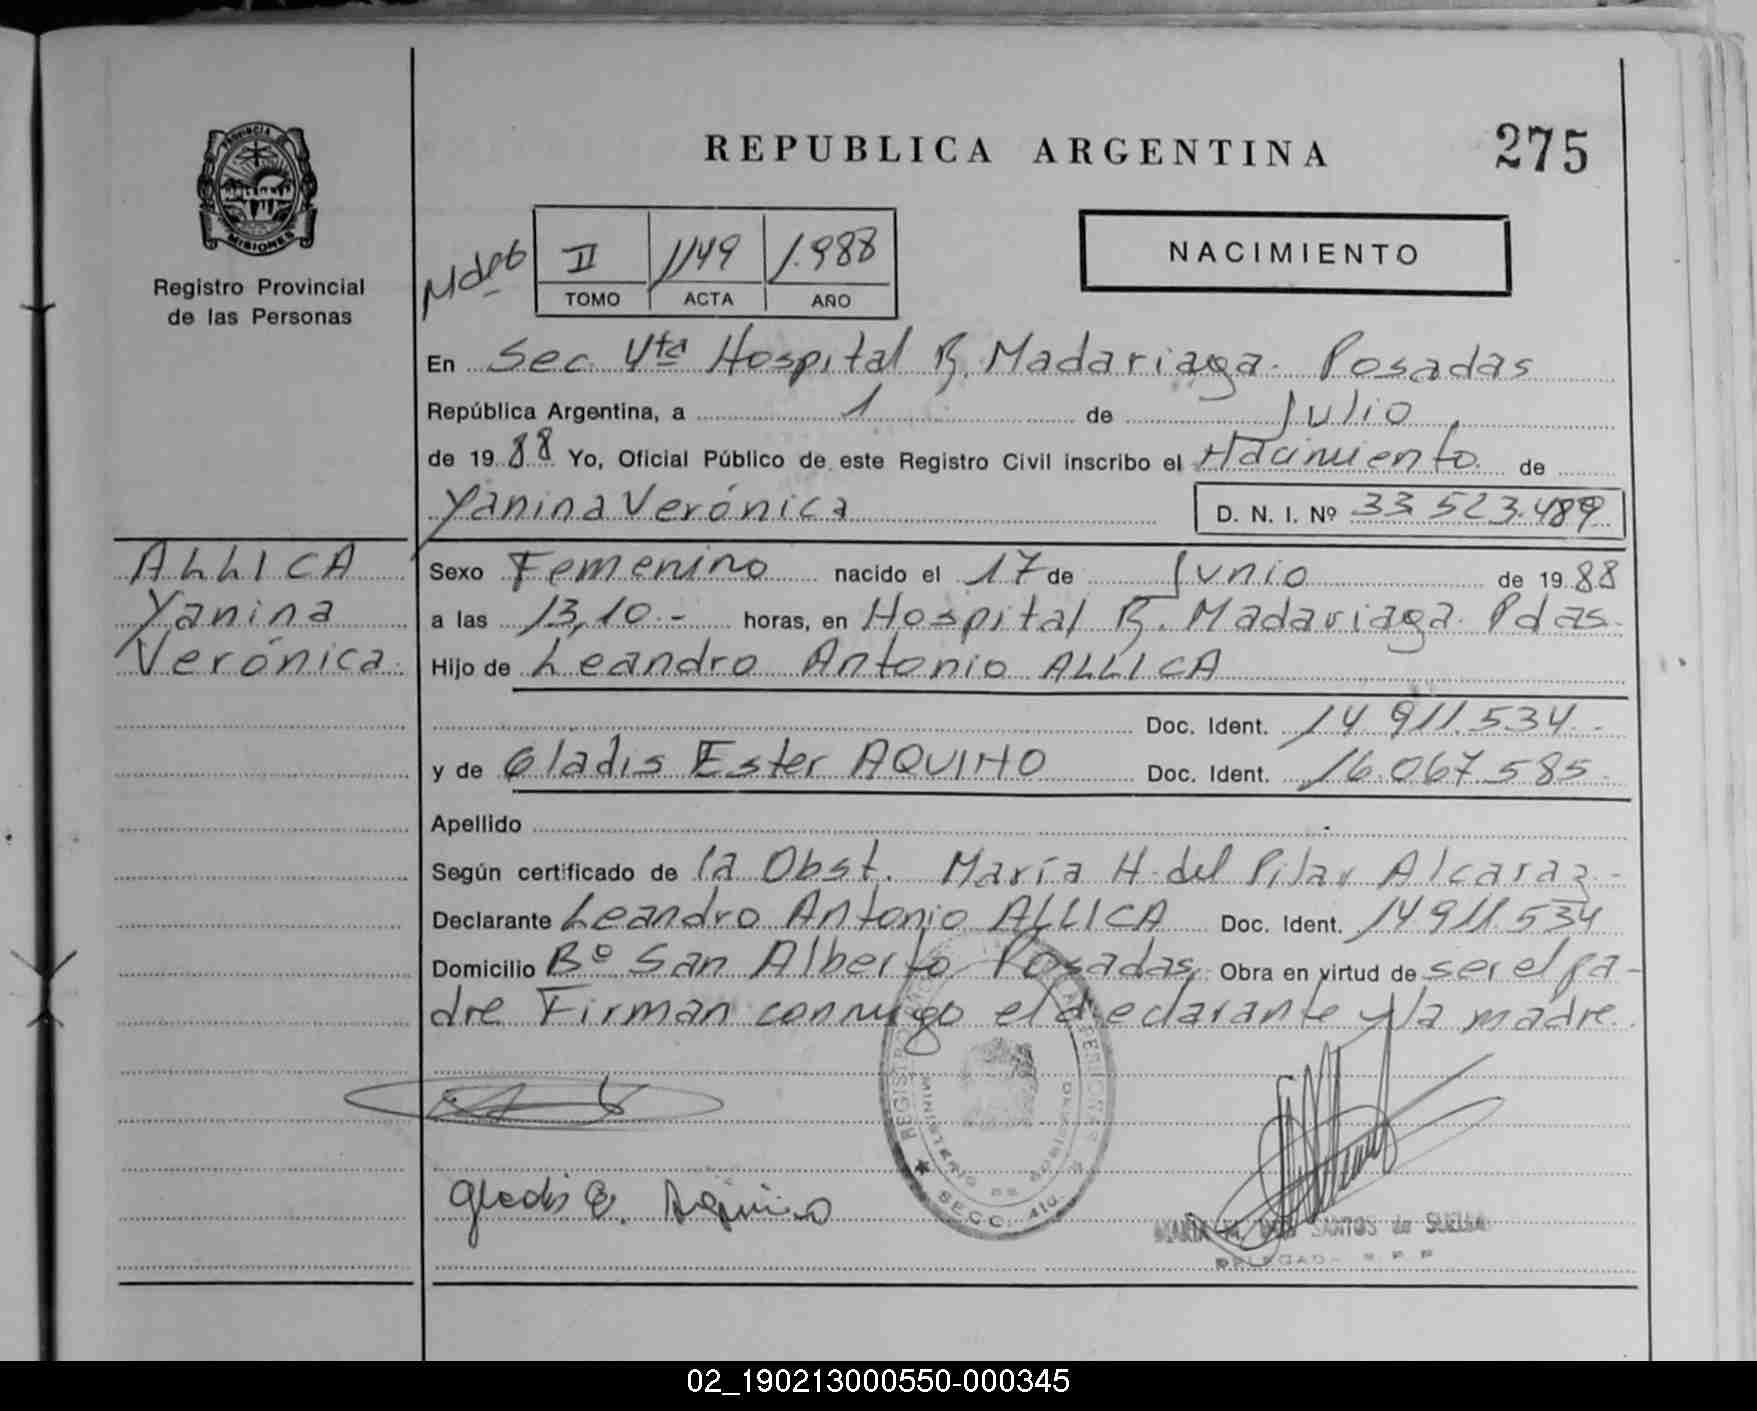 PROVINCIA DE
MISIONES
Registro Provincial
de las Personas
REPUBLICA ARGENTINA
275
II 1149 1.988
TOMO ACTA AÑO
NACIMIENTO
En Sec. 4ta Hospital R. Madariaga. Posadas
República Argentina, a 1 de Julio
de 1988 Yo, Oficial Público de este Registro Civil inscribo el Nacimiento de
Yanina Verónica D. N. I. Nº 33 523.489
ALLICA
Yanina
Verónica.
Sexo Femenino nacido el 17 de Junio de 1988
a las 13,10.- horas, en Hospital R. Madariaga. Pdas.
Hijo de Leandro Antonio ALLICA
Doc. Ident. 14 911.534.-
y de Gladis Ester AQUINO Doc. Ident. 16.067.585.
Apellido
Según certificado de la Obst. María H. del Pilar Alcaraz.-
Declarante Leandro Antonio ALLICA Doc. Ident. 14911.534
Domicilio Bº San Alberto Posadas, Obra en virtud de ser el pa-
dre Firman conmigo el declarante y la madre.
REGISTRO DE LAS PERSONAS
MINISTERIO DE GOBIERNO
SECC. 4ta.
Gladis E. Aquino
MARIA DOS SANTOS de
DELEGADA R P P
02_190213000550-000345